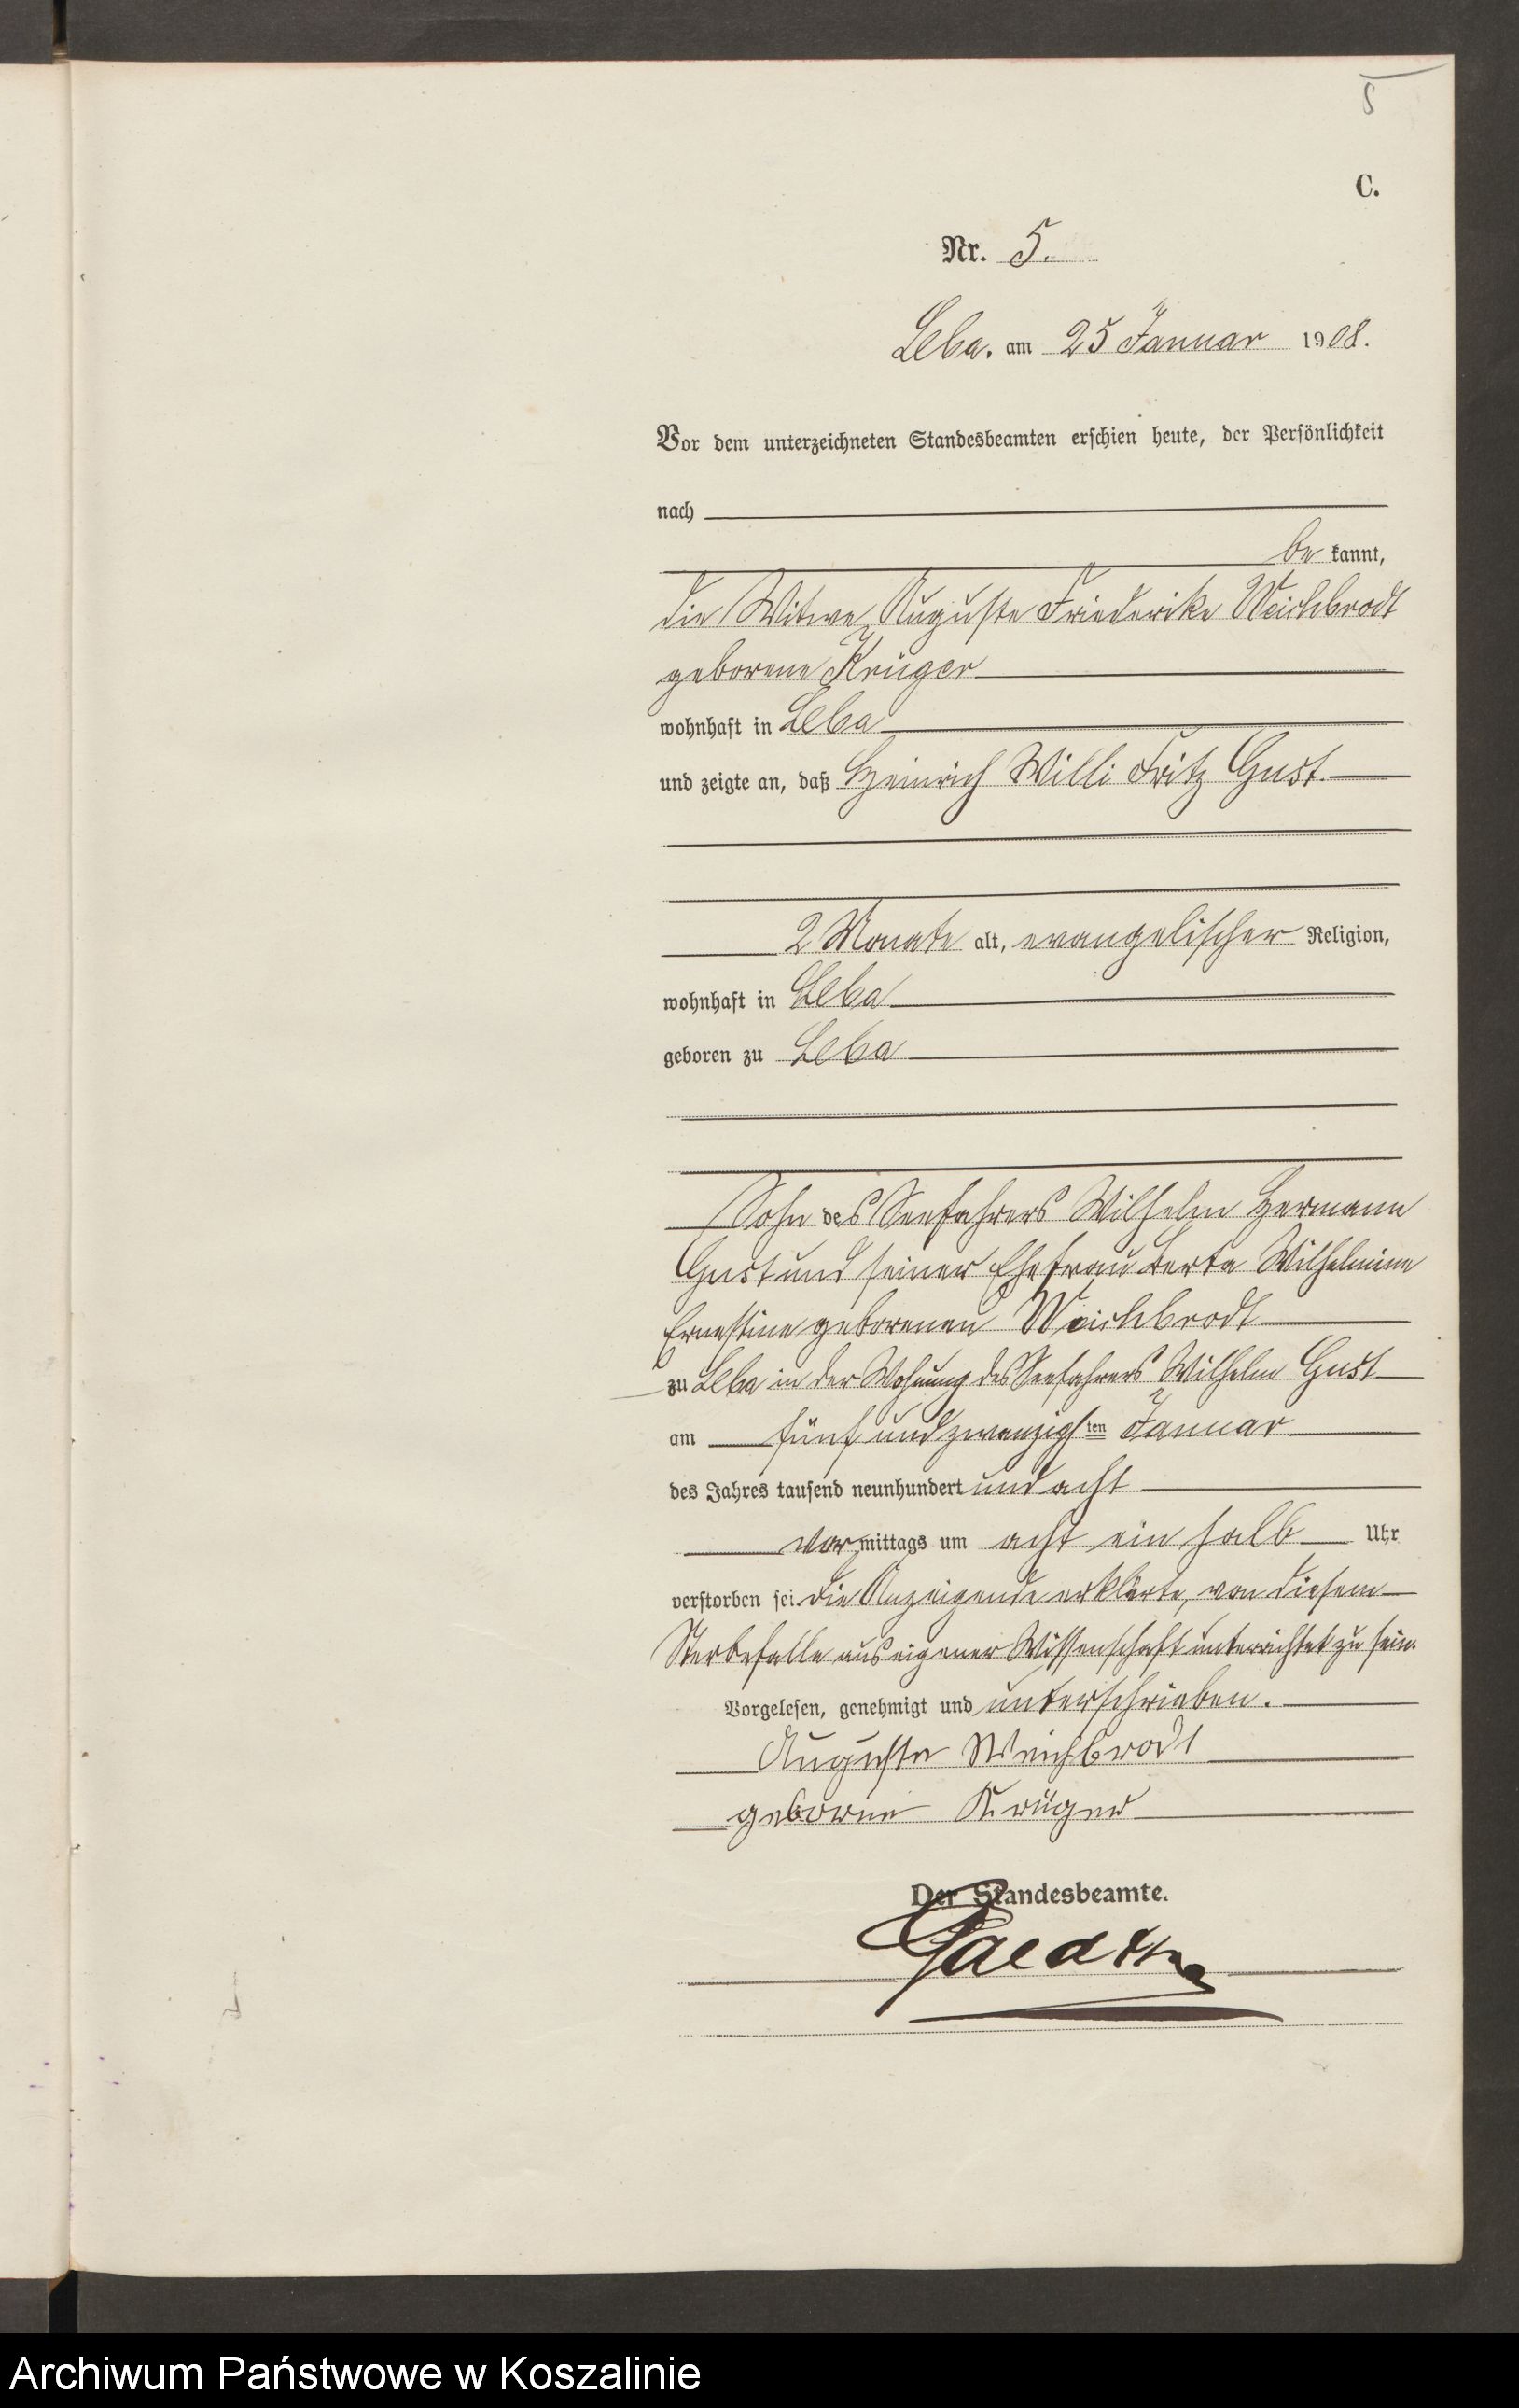 5
C.
Nr. 5.
Leba. am 25 Januar 1908.
Vor dem unterzeichneten Standesbeamten erschien heute, der Persönlichkeit
nach
be kannt,
die Witwe Auguste Friederike Weichbrodt
geborene Krüger
wohnhaft in Leba
und zeigte an, daß Heinrich Willi Fritz Gust.
2 Monate alt, evangelischer Religion,
wohnhaft in Leba
geboren zu Leba
Sohn des Seefahrers Wilhelm Hermann
Gust und seiner Ehefrau Berta Wilhelmine
Ernestine geborenen Weichbrodt
zu Leba in der Wohnung des Seefahrers Wilhelm Gust
am fünf und zwanzigsten Januar
des Jahres tausend neunhundert und acht
vor mittags um acht ein halb Uhr
verstorben sei. Die Anzeigende erklärte, von diesem
Sterbefalle aus eigener Wissenschaft unterrichtet zu sein.
Vorgelesen, genehmigt und unterschrieben.
Auguste Weichbrodt
geborne Krüger
Der Standesbeamte.
Archiwum Państwowe w Koszalinie